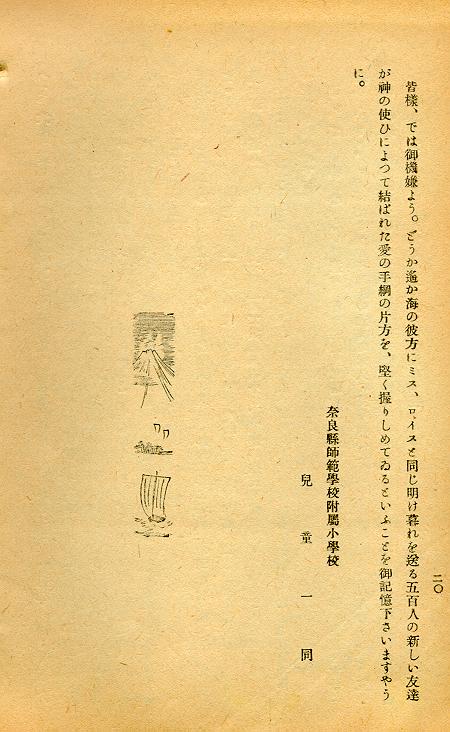 皆樣、では御機嫌よう。どうか遙か海の彼方にミス、ロイスと同じ明け暮れを送る五百人の新しい友達
が神の使ひによつて結ばれた愛の手綱の片方を、堅く握りしめてゐるといふことを御記憶下さいますやう
に。
奈良縣師範學校附屬小學校
兒童一同
二〇